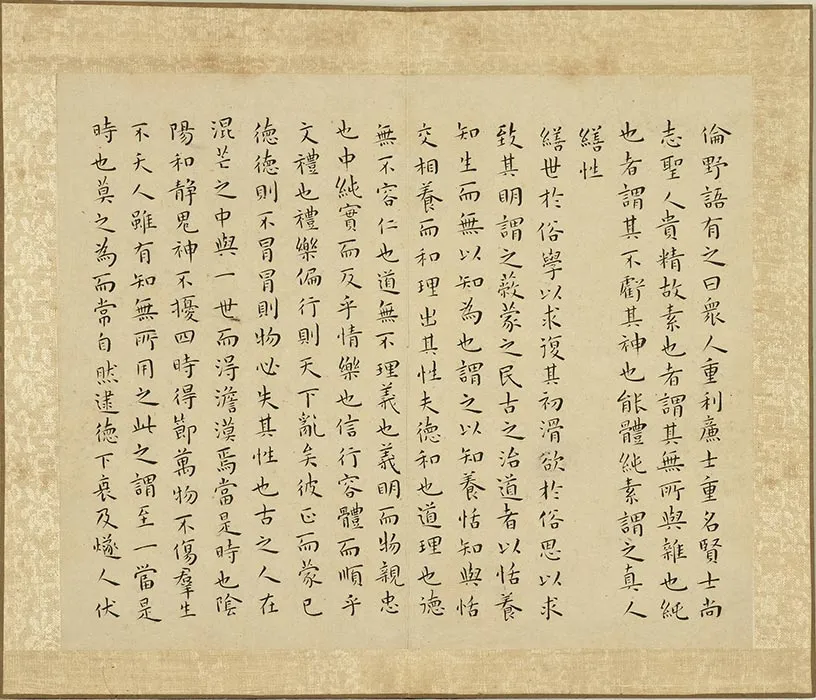 倫野語有之曰衆人重利廉士重名賢士尚
志聖人貴精故素也者謂其無所與雜也純
也者謂其不虧其神也能體純素謂之真人
繕性
繕世於俗學以求復其初滑欲於俗思以求
致其明謂之蔽蒙之民古之治道者以恬養
知生而無以知為也謂之以知養恬知與恬
交相養而和理出其性夫德和也道理也德
無不容仁也道無不理義也義明而物親忠
也中純實而反乎情樂也信行容體而順乎
文禮也禮樂偏行則天下亂矣彼正而蒙已
德德則不冒冒則物必失其性也古之人在
混芒之中與一世而得澹漠焉當是時也陰
陽和靜鬼神不擾四時得節萬物不傷羣生
不夭人雖有知無所用之此之謂至一當是
時也莫之為而常自然逮德下衰及燧人伏